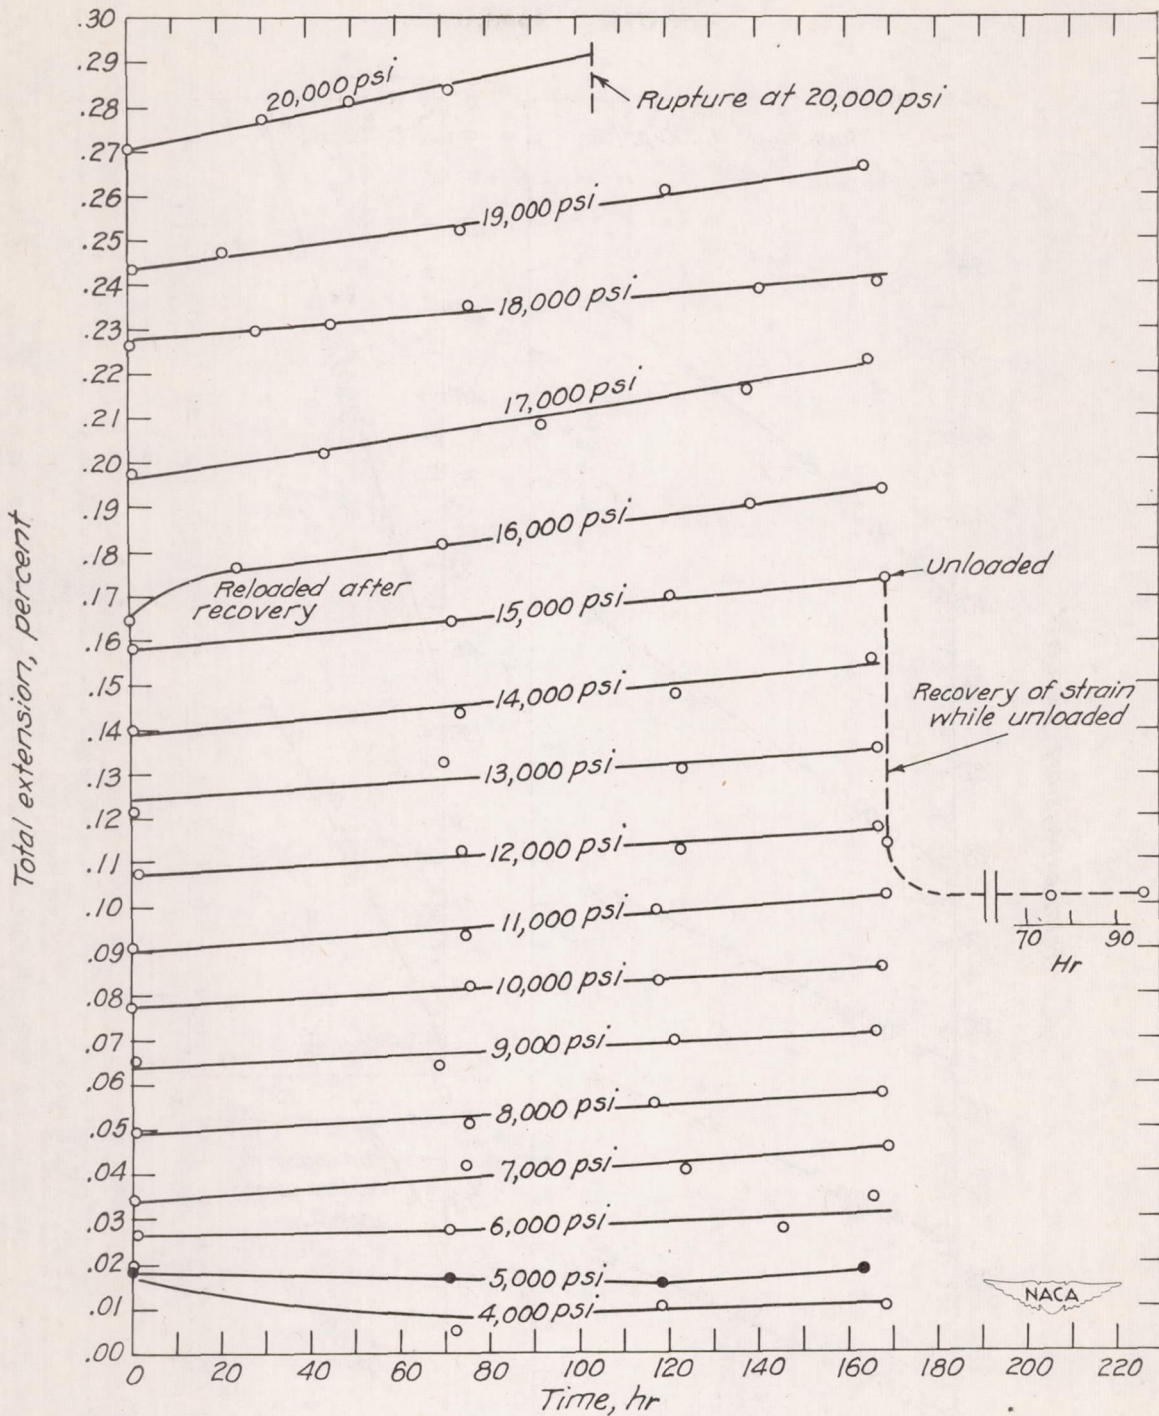 .30
.29
.28
.27
.26
.25
.24
.23
.22
.21
.20
.19
.18
.17
.16
.15
.14
.13
.12
.11
.10
.09
.08
.07
.06
.05
.04
.03
.02
.01
.00
Total extension, percent
20,000 psi
Rupture at 20,000 psi
19,000 psi
18,000 psi
17,000 psi
16,000 psi
Reloaded after
recovery
Unloaded
15,000 psi
14,000 psi
Recovery of strain
while unloaded
13,000 psi
12,000 psi
11,000 psi
70 90
Hr
10,000 psi
9,000 psi
8,000 psi
7,000 psi
6,000 psi
5,000 psi
4,000 psi
NACA
0 20 40 60 80 100 120 140 160 180 200 220
Time, hr